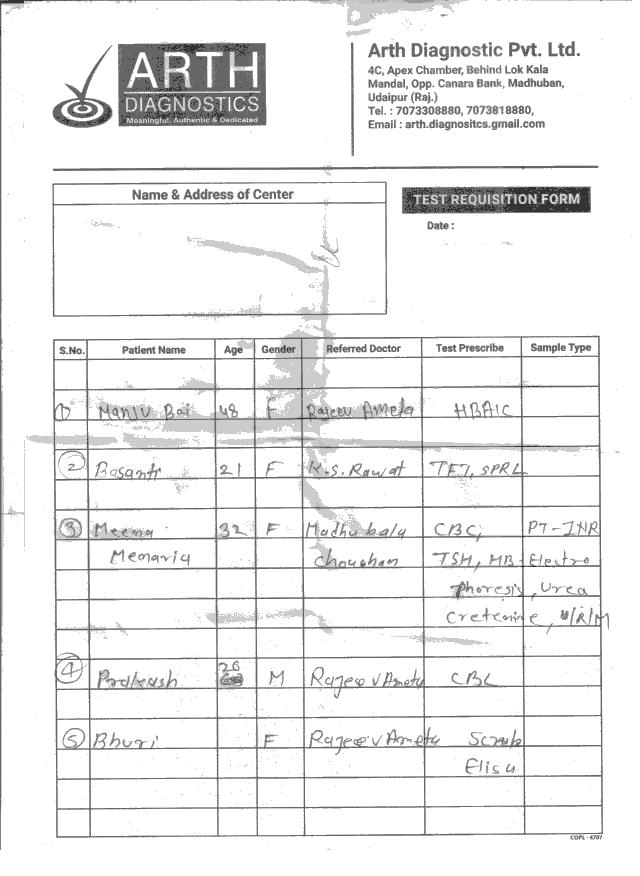 ARTH
DIAGNOSTICS
Meaningful, Authentic & Dedicated
Arth Diagnostic Pvt. Ltd.
4C, Apex Chamber, Behind Lok Kala
Mandal, Opp. Canara Bank, Madhuban,
Udaipur (Raj.)
Tel. : 7073308880, 7073818880,
Email : arth.diagnositcs.gmail.com
Name & Address of Center
TEST REQUISITION FORM
Date :
S.No. Patient Name Age Gender Referred Doctor Test Prescribe Sample Type
1 Manju Bai 48 F Rajeev Ameta HBA1C
2 Basanti 21 F K.S. Rawat TFT, SPRL
3 Meena 32 F Madhu bala CBC, PT-INR
Memaria chouohan TSH, HB- Electro
Phoresis, Urea
Creteanine, U/R/M
4 Prakash 26 M Rajeev Ameta CBC
5 Bhuri F Rajeev Ameta Scrub
Elisa
COPL - 4707